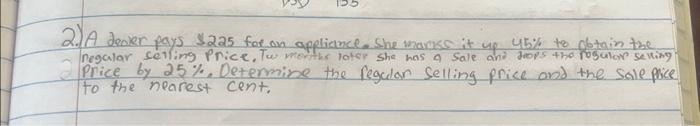 2.) A dealer pays $225 for an appliance. She marks it up 45% to obtain the
regular selling price. Two months later she has a sale and drops the regular selling
price by 25%. Determine the regular selling price and the sale price
to the nearest cent.